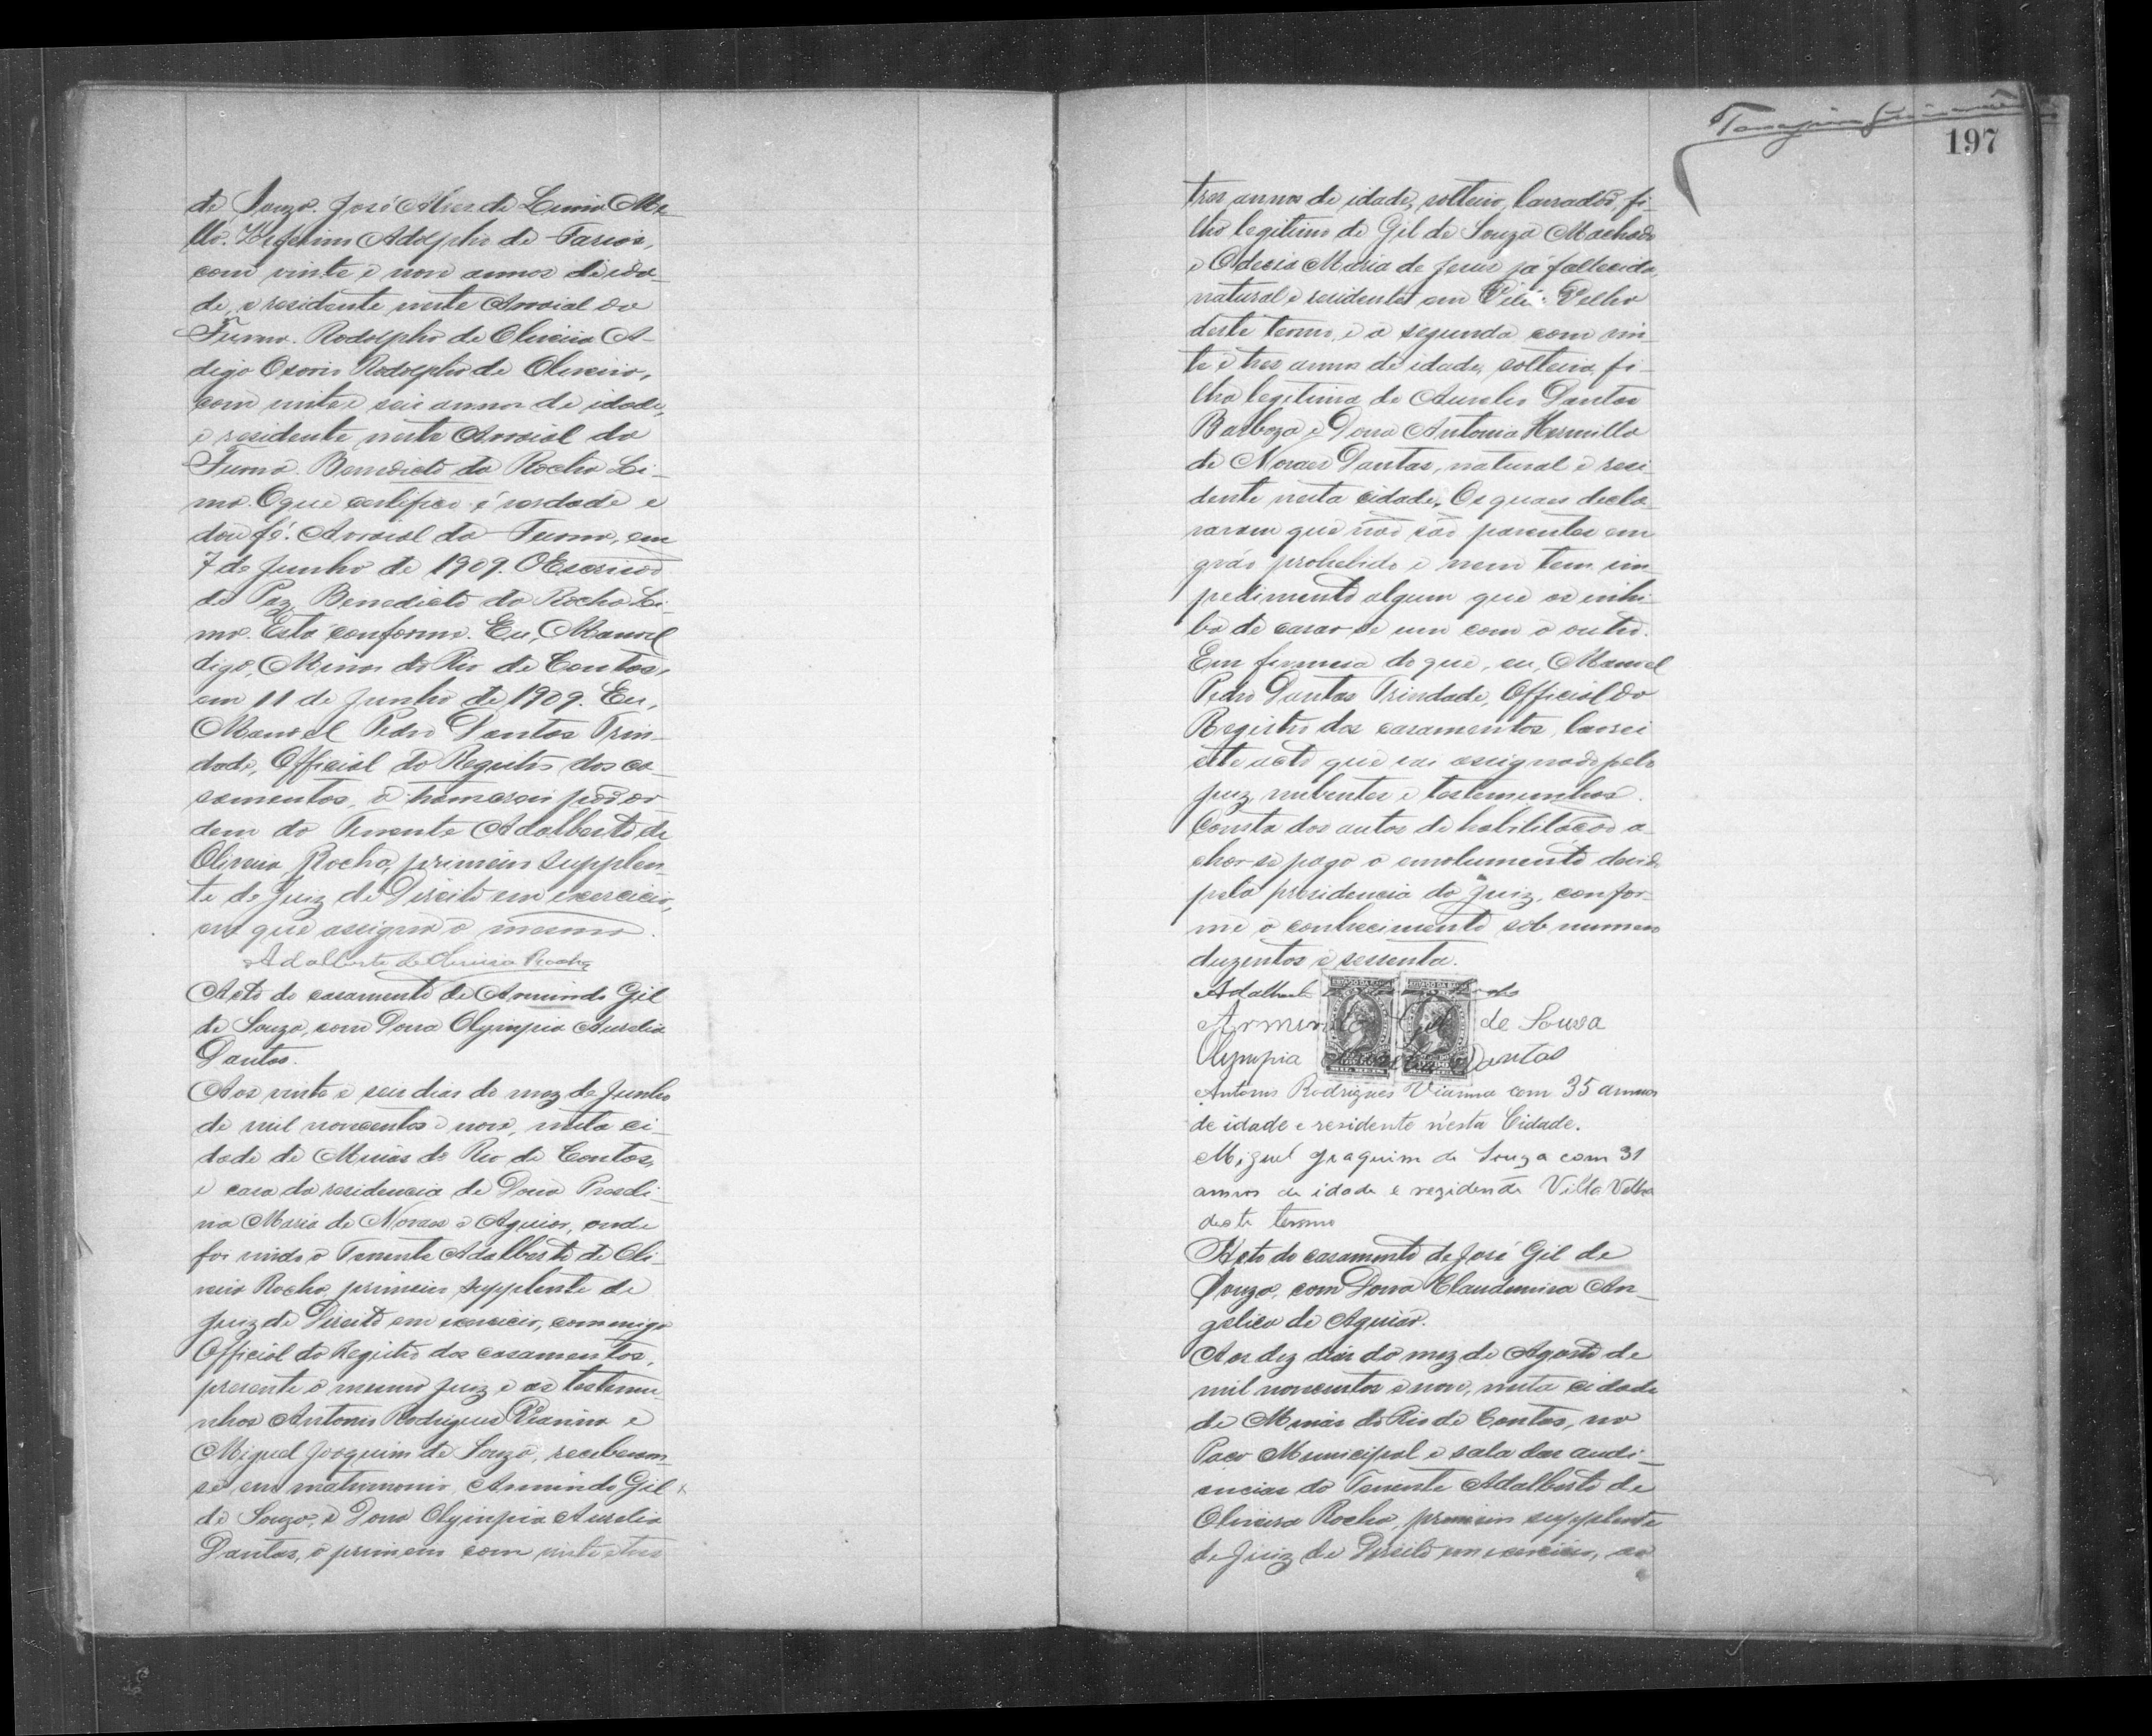 de Souza. José Alves de Lima Me-
llo. Zeferino Adolpho de Farias,
com vinte e nove annos de ida-
de, e residente neste Arraial do
Furna. Rodolpho de Oliveira A-
digo Osorio Rodolpho de Oliveira,
com vinte e seis annos de idade,
e residente neste Arraial da
Furna. Benedicto da Rocha Li-
ma. O que certifico é verdade e
dou fé. Arraial da Furna, em
7 de Junho de 1909. O Escrivão
de Paz, Benedicto da Rocha Li-
ma. Está conforme. Eu, Manoel
digo, Minas do Rio de Contas,
em 11 de Junho de 1909. Eu,
Manoel Pedro Dantas Trin-
dade, Official do Registro dos ca-
samentos, a transcrevi por or
dem do Tenente Adalberto de
Oliveira Rocha, primeiro supplen-
te do Juiz de Direito em exercicio,
em que assigna o mesmo.
Adalberto de Oliveira Rocha
Acto do casamento de Armindo Gil
de Souza, com Dona Olympia Aurelia
Dantas.
Aos vinte e seis dias do mez de Junho
de mil novecentos e nove, nesta ci-
dade de Minas do Rio de Contas,
e casa da residencia de Dona
Maria de Novaes e Aguiar, onde
foi vindo o Tenente Adalberto de Oli-
veira Rocha, primeiro supplente de
Juiz de Direito em exercicio, commigo
Official do Registro dos casamentos,
presente o mesmo Juiz e as testemu
nhas Antonio Rodrigues Vianna e
Miguel Joaquim de Souza, receberam-
se em matrimonio, Armindo Gil
de Souza, e Dona Olympia Aurelia
Dantas, o primeiro com vinte e tres
197
tres annos de idade, solteiro, lavrador, fi-
lho legitimo de Gil de Souza Machado
e Maria de Jesus já fallecida,
natural e residente em Villa Velha
deste termo, e a segunda com vin-
te e tres annos de idade, solteira, fi-
lha legitima de Aurelio Dantas
Barboza e Dona Antonia Hermilla
de Novaes Dantas, natural e resi-
dente nesta cidade. Os quaes decla-
raram que não são parentes em
gráo prohibido e nem tem im-
pedimento algum que os inhi-
ba de casar-se um com o outro.
Em firmeza do que, eu, Manoel
Pedro Dantas Trindade, Official do
Registro dos casamentos, lavrei
este acto que vai assignado pelo
juiz, nubentes e testemunhas.
Consta dos autos de habilitação a-
char-se pago o emolumento devido
pela presidencia do Juiz, confor-
me o conhecimento sob numero
duzentos e sessenta.
Adalberto de Oliveira Rocha
Armindo Gil de Souza
Olympia Aurelia Dantas
Antonio Rodrigues Vianna com 35 annos
de idade e residente n'esta Cidade.
Miguel Joaquim de Souza com 31
annos de idade e rezidente Villa Velha
deste termo
Acto do casamento de José Gil de
Souza, com Dona Claudemira An-
gelica de Aguiar.
Aos dez dias do mez de Agosto de
mil novecentos e nove, nesta cidade
de Minas do Rio de Contas, no
Paço Municipal e sala das audi-
encias do Tenente Adalberto de
Oliveira Rocha, primeiro supplente
de Juiz de Direito em exercicio, as